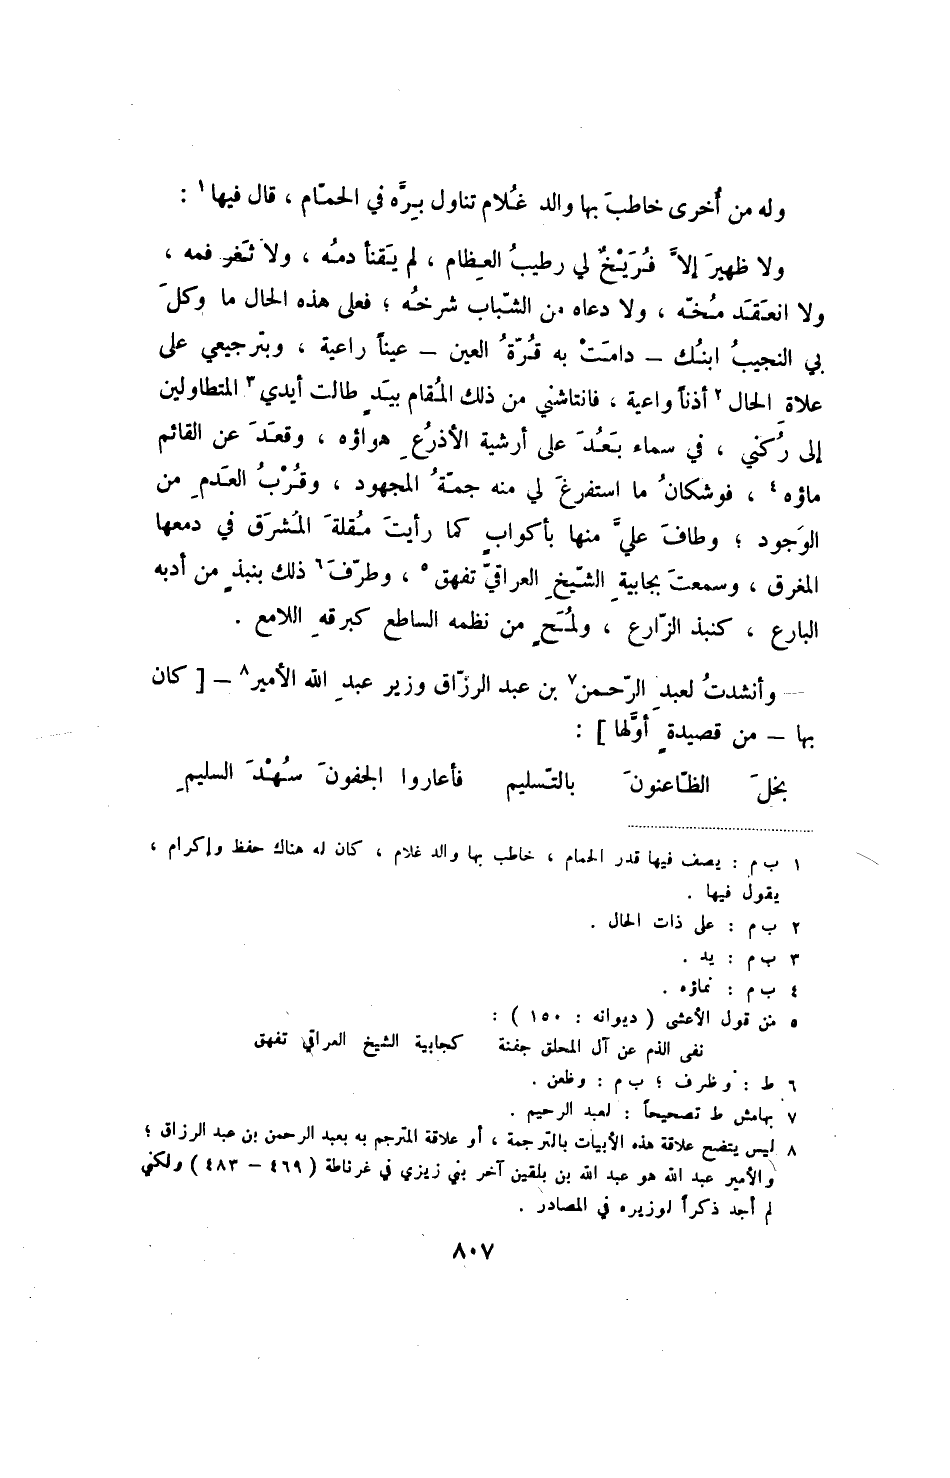 وله من أُخرى خاطبَ بها والد غُلام تناول بِرَّه في الحمّام ، قال فيها١ :
ولا ظهيرَ إلاَّ فُرَيْخٌ لي رطيبُ العِظام ، لم يَقنأ دمُه ، ولا ثَغر فمه ،
ولا انعَقَد مُخّه ، ولا دعاه من الشّباب شرخُه ؛ فعلى هذه الحال ما وكلَ
بي النجيبُ ابنُك – دامَتْ به قُرّةُ العين – عيناً راعية ، وبترجيعي على
علاةِ الحال٢ أذناً واعية ، فانتاشني من ذلك المُقام بيَدٍ طالت أيدي٣ المتطاولين
إلى رُكني ، في سماء بَعُدَ على أرشية الأذرُعِ هواؤه ، وقعَدَ عن القائم
ماؤه٤ ، فوشكانُ ما استفرغَ لي منه جمّةُ المجهود ، وقُرْبُ العَدمِ من
الوَجود ؛ وطافَ عليَّ منها بأكوابٍ كما رأيتَ مُقلةَ المُشرَق في دمعها
المغرق ، وسمعتَ بجابيةِ الشّيخِ العراقيّ تفهق٥ ، وطرّفَ٦ ذلك بنبذٍ من أدبه
البارع ، كنبذ الزّارع ، ولُمَحٍ من نظمه الساطع كبرقهِ اللامع .
— وأنشدتُ لعبدِ الرّحمن٧ بن عبد الرزّاق وزير عبدِ الله الأمير٨ – [ كان
بها – من قصيدةٍ أوَّلها ] :
بخلَ الظّاعنونَ بالتّسليم فأعاروا الجفونَ سُهْدَ السليمِ
١ ب م : يصف فيها قدر الحمام ، خاطب بها والد غلام ، كان له هناك حفظ وإكرام ،
يقول فيها .
٢ ب م : على ذات الحال .
٣ ب م : يد .
٤ ب م : نماؤه .
٥ من قول الأعشى ( ديوانه : ١٥٠ ) :
نفى الذم عن آل المحلق جفنة كجابية الشيخ العراقي تفهق
٦ ط : وظرف ؛ ب م : وظعن .
٧ بهامش ط تصحيحاً : لعبد الرحيم .
٨ ليس يتضح علاقة هذه الأبيات بالترجمة ، أو علاقة المترجم به بعبد الرحمن بن عبد الرزاق ؛
والأمير عبد الله هو عبد الله بن بلقين آخر بني زيزي في غرناطة ( ٤٦٩ – ٤٨٣ ) ولكني
لم أجد ذكراً لوزيره في المصادر .
٨٠٧